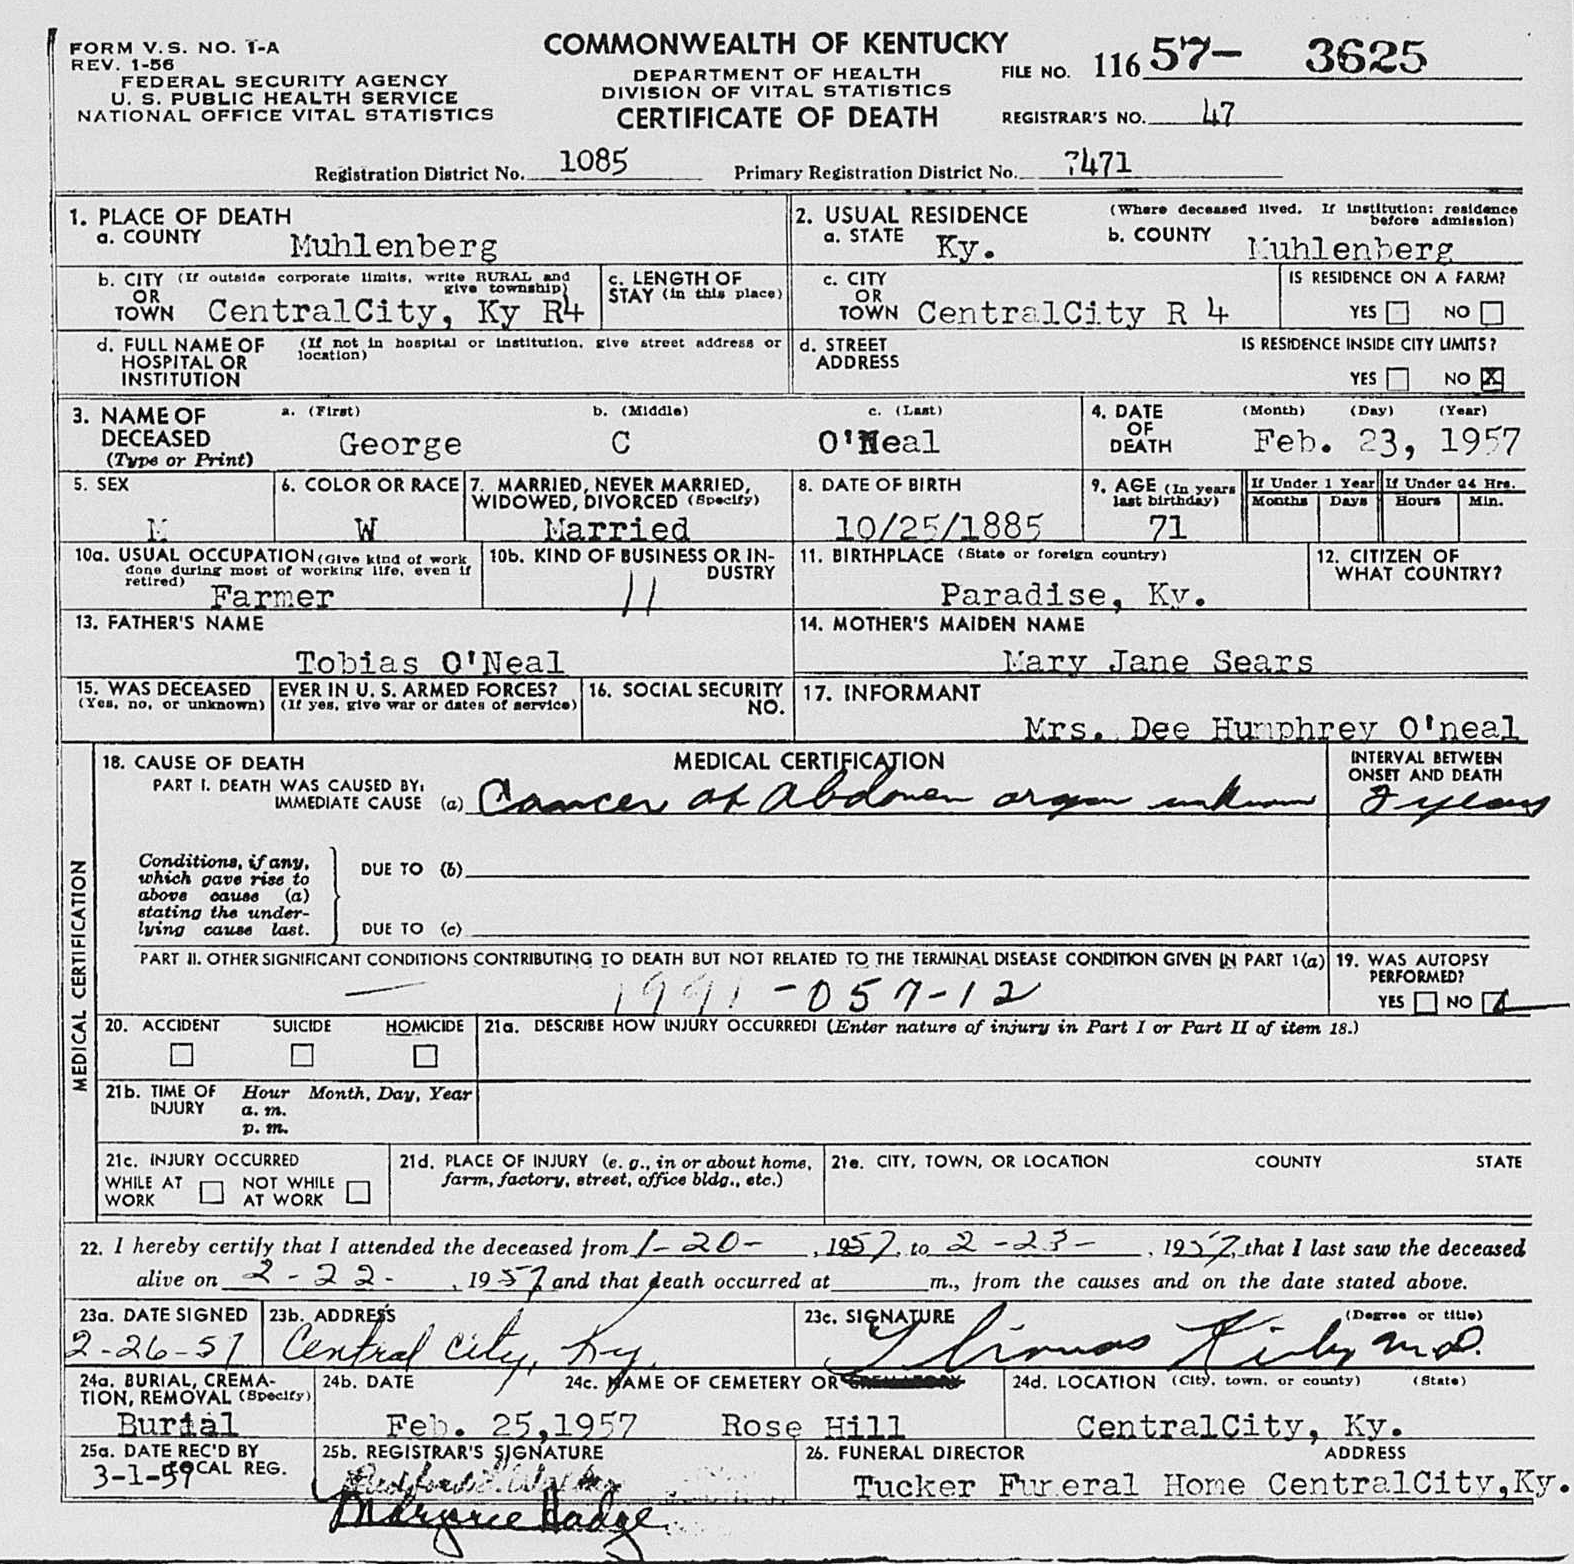 FORM V. S. NO. 1-A
REV. 1-56
FEDERAL SECURITY AGENCY
U. S. PUBLIC HEALTH SERVICE
NATIONAL OFFICE VITAL STATISTICS
COMMONWEALTH OF KENTUCKY
DEPARTMENT OF HEALTH
DIVISION OF VITAL STATISTICS
CERTIFICATE OF DEATH
FILE NO. 116 57- 3625
REGISTRAR'S NO. 47
Registration District No. 1085 Primary Registration District No. 7471
1. PLACE OF DEATH
a. COUNTY Muhlenberg
2. USUAL RESIDENCE (Where deceased lived. If institution: residence before admission)
a. STATE Ky. b. COUNTY Muhlenberg
b. CITY (If outside corporate limits, write RURAL and give township)
OR
TOWN CentralCity, Ky R4
c. LENGTH OF STAY (in this place)
c. CITY
OR
TOWN CentralCity R 4
IS RESIDENCE ON A FARM?
YES NO
d. FULL NAME OF HOSPITAL OR INSTITUTION (If not in hospital or institution, give street address or location)
d. STREET ADDRESS
IS RESIDENCE INSIDE CITY LIMITS?
YES NO X
3. NAME OF DECEASED (Type or Print)
a. (First) b. (Middle) c. (Last)
George C O'Neal
4. DATE OF DEATH (Month) (Day) (Year)
Feb. 23, 1957
5. SEX
M
6. COLOR OR RACE
W
7. MARRIED, NEVER MARRIED, WIDOWED, DIVORCED (Specify)
Married
8. DATE OF BIRTH
10/25/1885
9. AGE (In years last birthday)
71
If Under 1 Year
Months Days
If Under 24 Hrs.
Hours Min.
10a. USUAL OCCUPATION (Give kind of work done during most of working life, even if retired)
Farmer
10b. KIND OF BUSINESS OR INDUSTRY
11
11. BIRTHPLACE (State or foreign country)
Paradise, Ky.
12. CITIZEN OF WHAT COUNTRY?
13. FATHER'S NAME
Tobias O'Neal
14. MOTHER'S MAIDEN NAME
Mary Jane Sears
15. WAS DECEASED EVER IN U. S. ARMED FORCES?
(Yes, no, or unknown) (If yes, give war or dates of service)
16. SOCIAL SECURITY NO.
17. INFORMANT
Mrs. Dee Humphrey O'neal
MEDICAL CERTIFICATION
18. CAUSE OF DEATH
MEDICAL CERTIFICATION
INTERVAL BETWEEN ONSET AND DEATH
PART I. DEATH WAS CAUSED BY:
IMMEDIATE CAUSE (a) Cancer of Abdomen organ unknown 2 years
Conditions, if any, which gave rise to above cause (a) stating the underlying cause last.
DUE TO (b)
DUE TO (c)
PART II. OTHER SIGNIFICANT CONDITIONS CONTRIBUTING TO DEATH BUT NOT RELATED TO THE TERMINAL DISEASE CONDITION GIVEN IN PART 1(a)
— 1991-057-12
19. WAS AUTOPSY PERFORMED?
YES NO
20. ACCIDENT SUICIDE HOMICIDE
21a. DESCRIBE HOW INJURY OCCURRED! (Enter nature of injury in Part I or Part II of item 18.)
21b. TIME OF INJURY Hour Month, Day, Year
a. m.
p. m.
21c. INJURY OCCURRED
WHILE AT WORK NOT WHILE AT WORK
21d. PLACE OF INJURY (e. g., in or about home, farm, factory, street, office bldg., etc.)
21e. CITY, TOWN, OR LOCATION COUNTY STATE
22. I hereby certify that I attended the deceased from 1-20-, 1957, to 2-23-, 1957, that I last saw the deceased
alive on 2-22-, 1957 and that death occurred at m., from the causes and on the date stated above.
23a. DATE SIGNED
2-26-57
23b. ADDRESS
Central City, Ky.
23c. SIGNATURE (Degree or title)
Thomas Kirby M.D.
24a. BURIAL, CREMATION, REMOVAL (Specify)
Burial
24b. DATE
Feb. 25,1957
24c. NAME OF CEMETERY OR CREMATORY
Rose Hill
24d. LOCATION (City, town, or county) (State)
CentralCity, Ky.
25a. DATE REC'D BY LOCAL REG.
3-1-59
25b. REGISTRAR'S SIGNATURE
Marjorie Hadge
26. FUNERAL DIRECTOR ADDRESS
Tucker Funeral Home CentralCity,Ky.